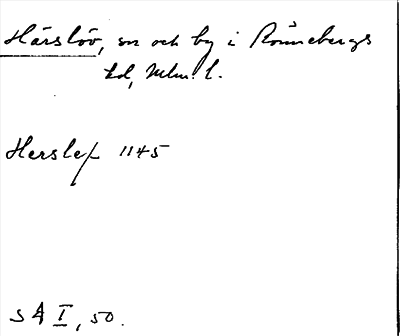 Härslöv, sn och by i Rönnebergs
hd, Mlm. l.
Herslef 1145
SÅ I, 50.